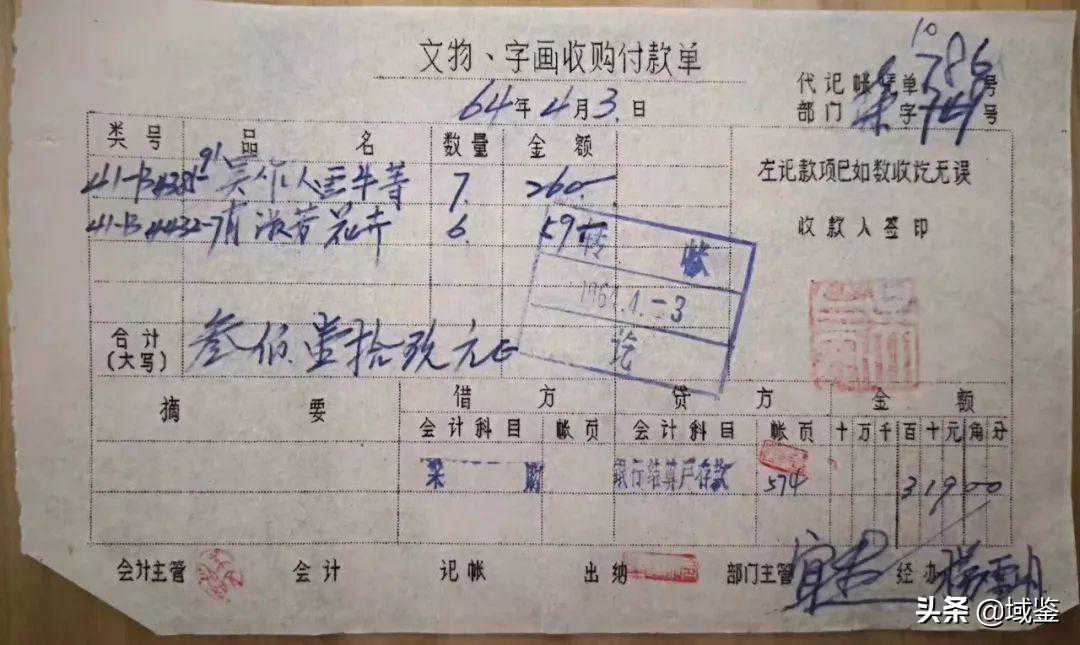 文物、字画收购付款单
代记帐凭单10786号
64年4月3日
部门 字 号
类号 品名 数量 金额
41-B4385-91 吴作人 云牛等 7. 260-
左记款项已如数收讫无误
41-B4432-7 花卉 6. 59-
收款人签印
转帐
1964.4.-3
讫
合计(大写) 叁佰壹拾玖元正
摘要 借方 贷方 金额
会计科目 帐页 会计科目 帐页 十万千百十元角分
采购 银行结算户存款 574 31900
会计主管 会计 记帐 出纳 部门主管 经办
头条 @域鉴